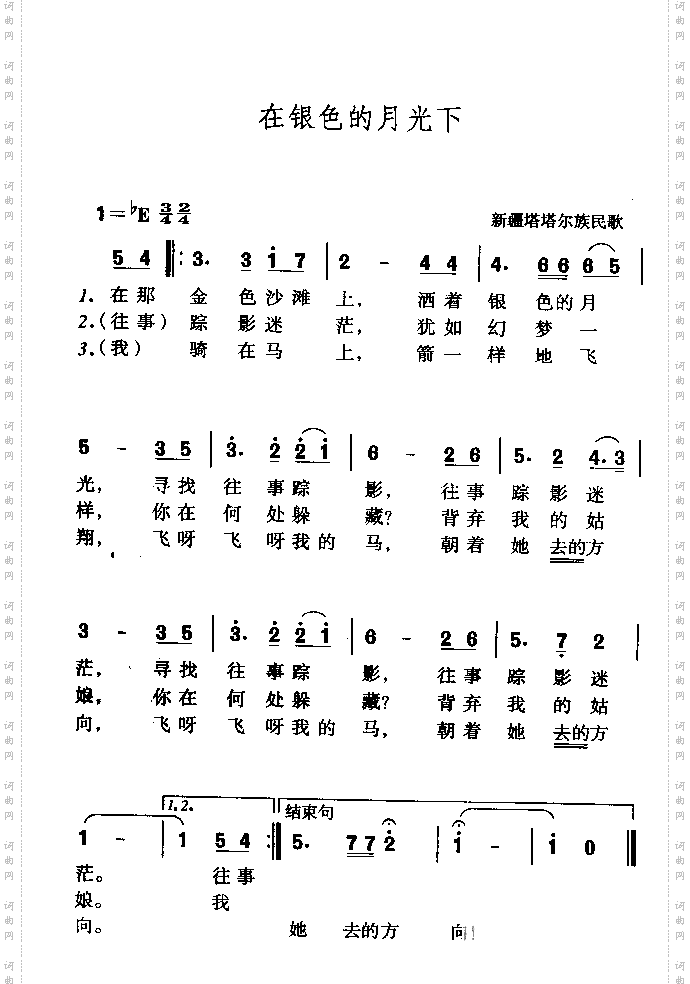 在银色的月光下
1=♭E 3/4 2/4
新疆塔塔尔族民歌
5 4 ‖: 3. 3 i 7 | 2 - 4 4 | 4. 6 6 6 5 |
1. 在那 金 色沙滩 上， 洒着 银 色的月
2.（往事）踪 影迷 茫， 犹如 幻 梦 一
3.（我） 骑 在马 上， 箭一 样 地 飞
5 - 3 5 | 3. 2 2 1 | 6 - 2 6 | 5. 2 4.3 |
光， 寻找 往 事踪 影， 往事 踪 影迷
样， 你在 何 处躲 藏？ 背弃 我 的 姑
翔， 飞呀 飞 呀我的 马， 朝着 她 去的方
3 - 3 5 | 3. 2 2 1 | 6 - 2 6 | 5. 7 2 |
茫， 寻找 往 事踪 影， 往事 踪 影迷
娘， 你在 何 处躲 藏？ 背弃 我 的 姑
向， 飞呀 飞 呀我的 马， 朝着 她 去的方
1.2. 结束句
1 - | 1 5 4 :‖ 5. 7 7 2 | i - | i 0 ‖
茫。 往事
娘。 我
向。 她 去的方 向！
词曲网